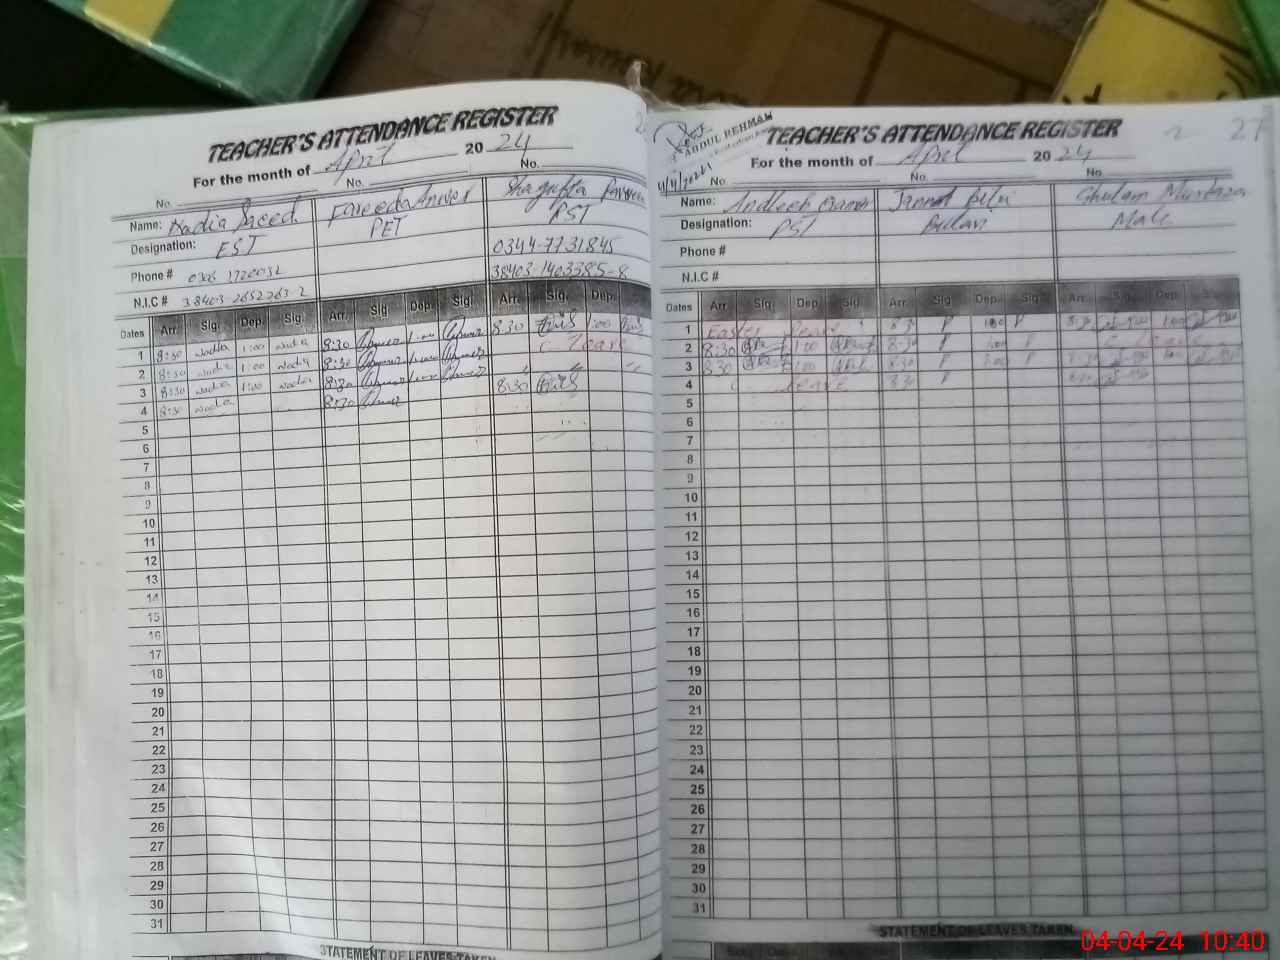 TEACHER'S ATTENDANCE REGISTER
For the month of April 2024
No. No. No.
Name: Nadia Saeed Fareeda Anwer Shagufta Parveen
Designation: EST PET PST
Phone # 0344-7731845
N.I.C # 38403-2652263-2 38403-1403385-8
Dates Arr. Sig. Dep. Sig. Arr. Sig. Dep. Sig. Arr. Sig. Dep.
1 8:30 Nadia 1:00 Nadia 8:30 1:00 8:30 1:00
2 8:30 Nadia 1:00 Nadia 8:30 1:00 C Leave
3 8:30 Nadia 1:00 Nadia 8:30 1:00 8:30
4 8:30 Nadia 8:30
5
6
7
8
9
10
11
12
13
14
15
16
17
18
19
20
21
22
23
24
25
26
27
28
29
30
31
STATEMENT OF LEAVES TAKEN
ABDUL REHMAN
TEACHER'S ATTENDANCE REGISTER 27
For the month of April 2024
No. No. No.
Name: Jannat Bibi Ghulam Murtaza
Designation: PST Mali
Phone #
N.I.C #
Dates Arr. Sig. Dep. Sig. Arr. Sig. Dep. Sig. Arr. Sig. Dep.
1 Easter Leave 8:30 P 1:00 P 8:30 1:00
2 8:30 1:00 8:30 P 1:00 P C Leave
3 8:30 1:00 8:30 P 1:00 P 8:30 1:00
4 C Leave 8:30 P 8:30
5
6
7
8
9
10
11
12
13
14
15
16
17
18
19
20
21
22
23
24
25
26
27
28
29
30
31
STATEMENT OF LEAVES TAKEN
04-04-24 10:40